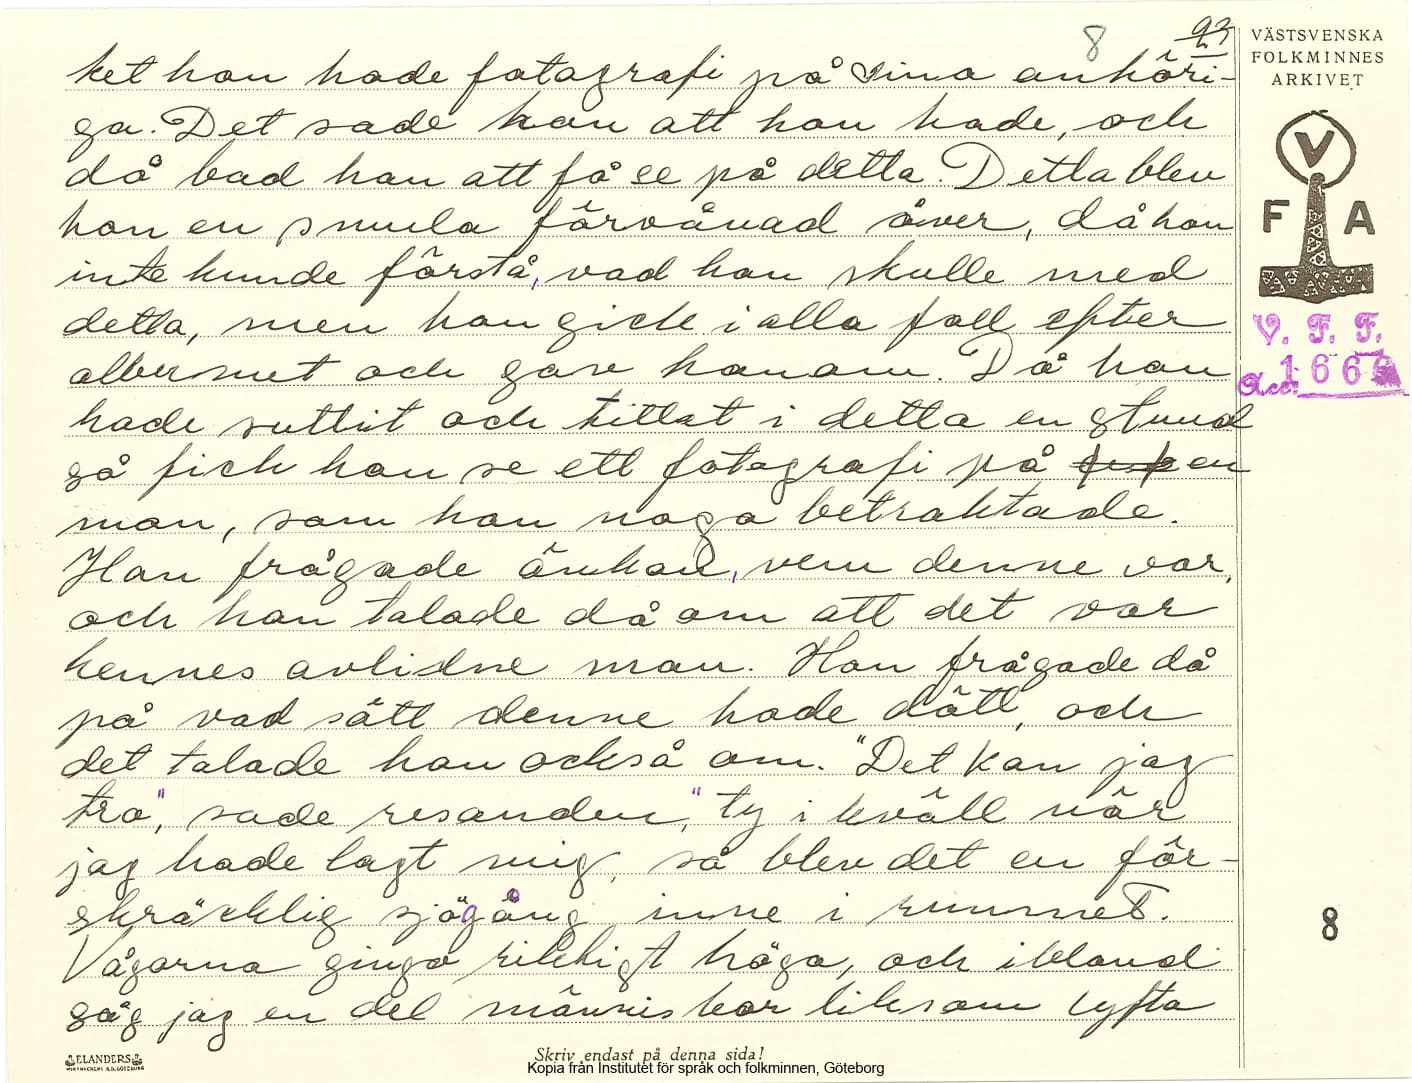 8
93
VÄSTSVENSKA
FOLKMINNES
ARKIVET
ket hon hade fotografi på sina anhöri-
ga. Det sade hon att hon hade, och
då bad han att få se på detta. Detta blev
hon en smula förvånad över, då hon
inte kunde förstå, vad han skulle med
detta, men hon gick i alla fall efter
albumet och gav honom. Då han
hade suttit och tittat i detta en stund
så fick han se ett fotografi på en
man, som han noga betraktade.
Han frågade änkan, vem denne var,
och hon talade då om att det var
hennes avlidne man. Han frågade då
på vad sätt denne hade dött, och
det talade hon också om. "Det kan jag
tro", sade resanden, "ty i kväll när
jag hade lagt mig, så blev det en för-
skräcklig sjögång inne i rummet.
Vågorna gingo riktigt höga, och ibland
såg jag en del människor liksom lyfta
V
F A
V. F. F.
Acc: 166
8
ELANDERS
Skriv endast på denna sida!
Kopia från Institutet för språk och folkminnen, Göteborg